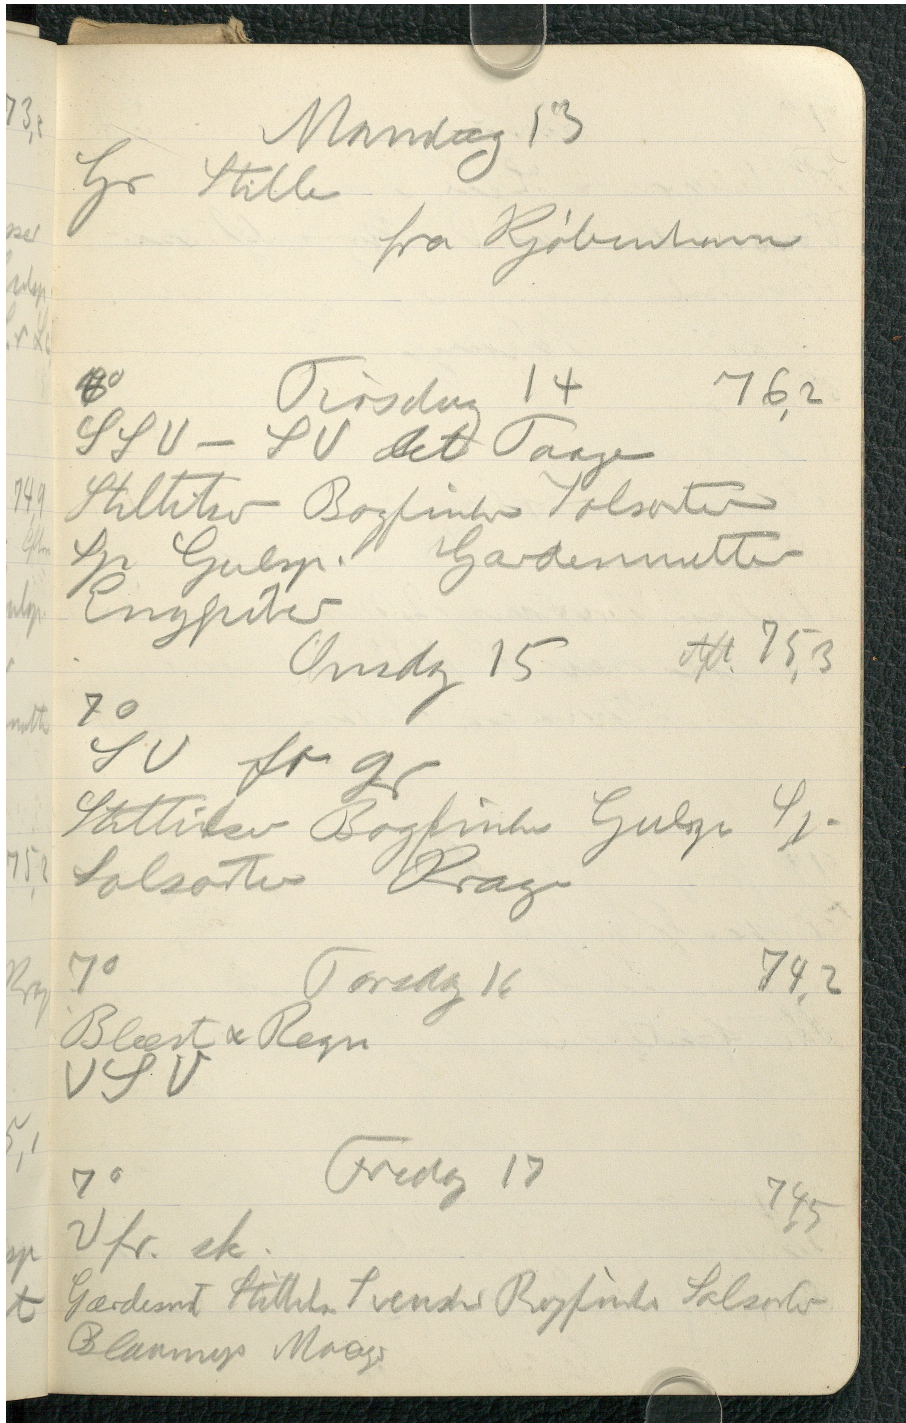 Mandag 13
Gr Stille
fra Kjöbenhavn
6° Tirsdag 14 76,2
SSV – SV let Taage
Stillitser Bogfinke Solsorter
Sp Gulsp. Gærdesmutter
Engpiber
Onsdag 15 Aft. 75,3
7°
SV fr gr
Stillitser Bogfinke Gulsp Sp.
Solsorter Krage
7° Torsdag 16 74,2
Blæst & Regn
VSV
Fredag 17
7° 74,5
V fr. sk.
Gærdesmt Stillits Svenske Bogfinke Solsorter
Blaamejs Maage